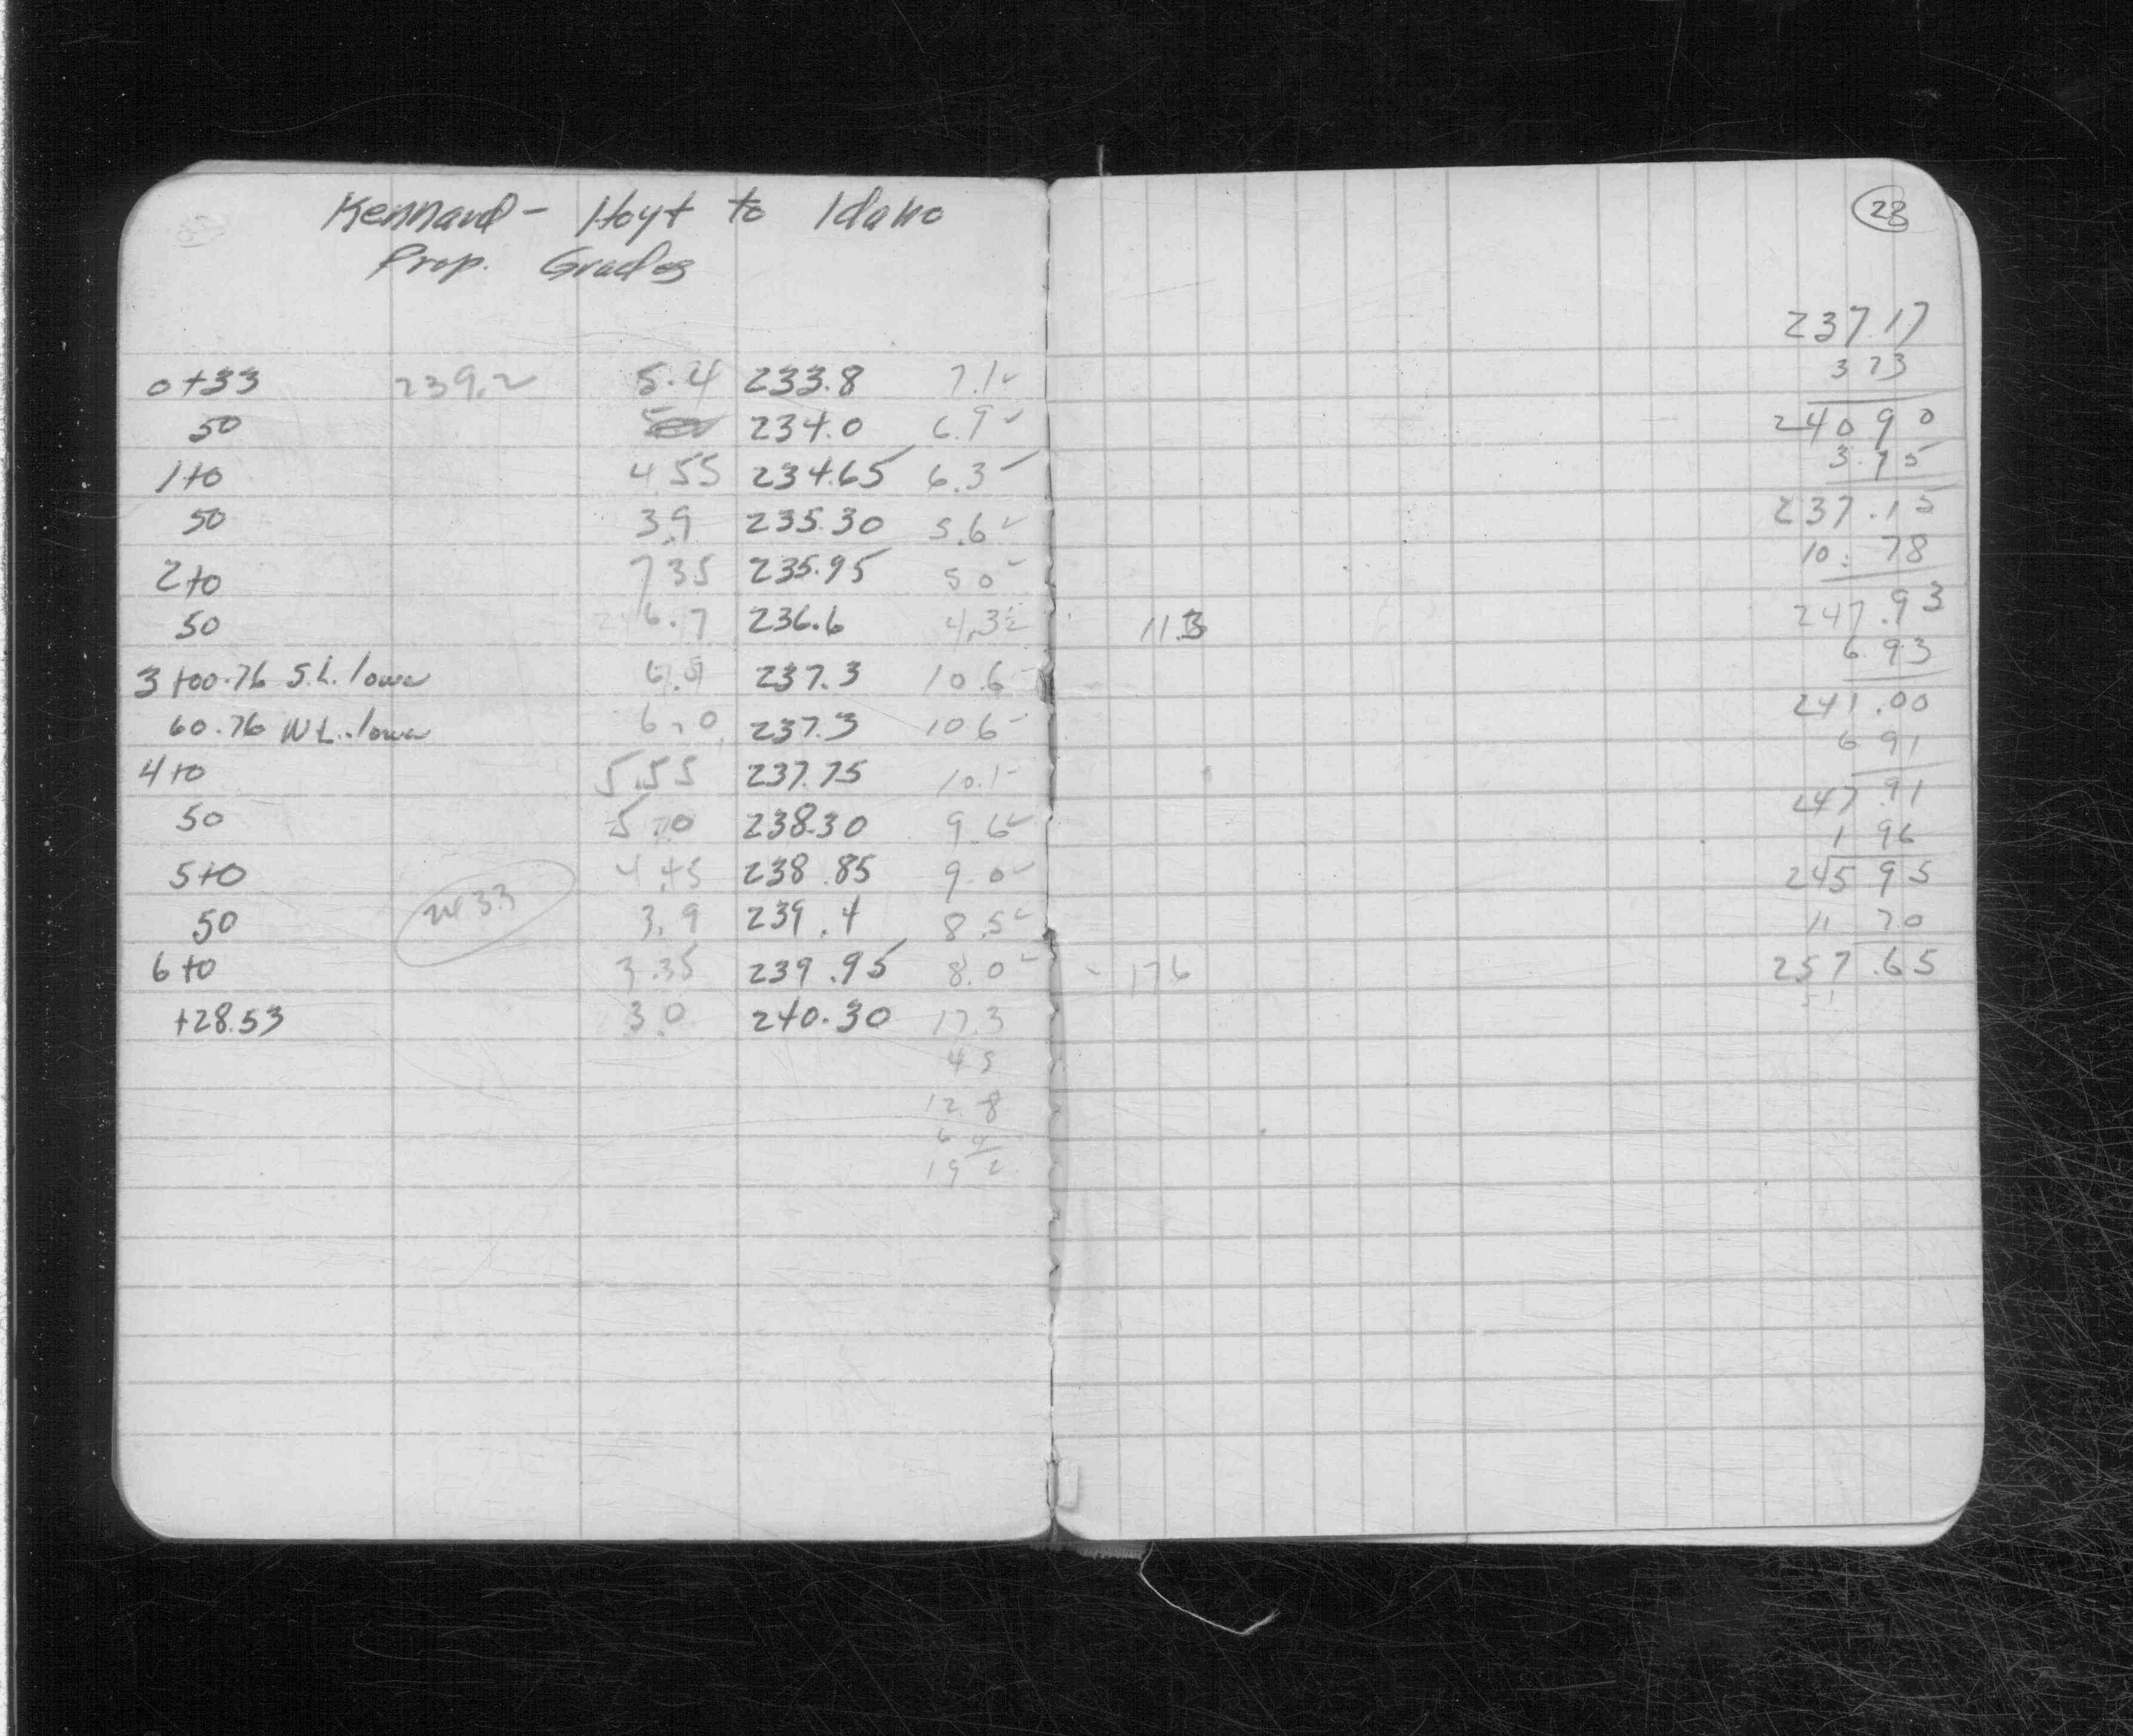 Kennard - Hoyt to Idaho
Prop. Grades
0+33 239.2 5.4 233.8 7.1
50 234.0 6.9
1+0 4.55 234.65 6.3
50 3.9 235.30 5.6
2+0 7.35 235.95 5 0
50 6.7 236.6 4.3½
3+00.76 S.L. Iowa 6.0 237.3 10.6
60.76 N L. Iowa 6.0 237.3 10 6
4+0 5.55 237.75 10.1
50 5.0 238.30 9.6
5+0 4.45 238.85 9.0
243.3
50 3.9 239.4 8.5
6+0 3.35 239.95 8.0
+28.53 3.0 240.30 17.3
4 5
12.8
6 4
19 2
28
237.17
3 73
240 90
3.75
237.15
10.78
11.3
247.93
6.93
241.00
6 91
247.91
1 96
245 95
11 70
17 6
257.65